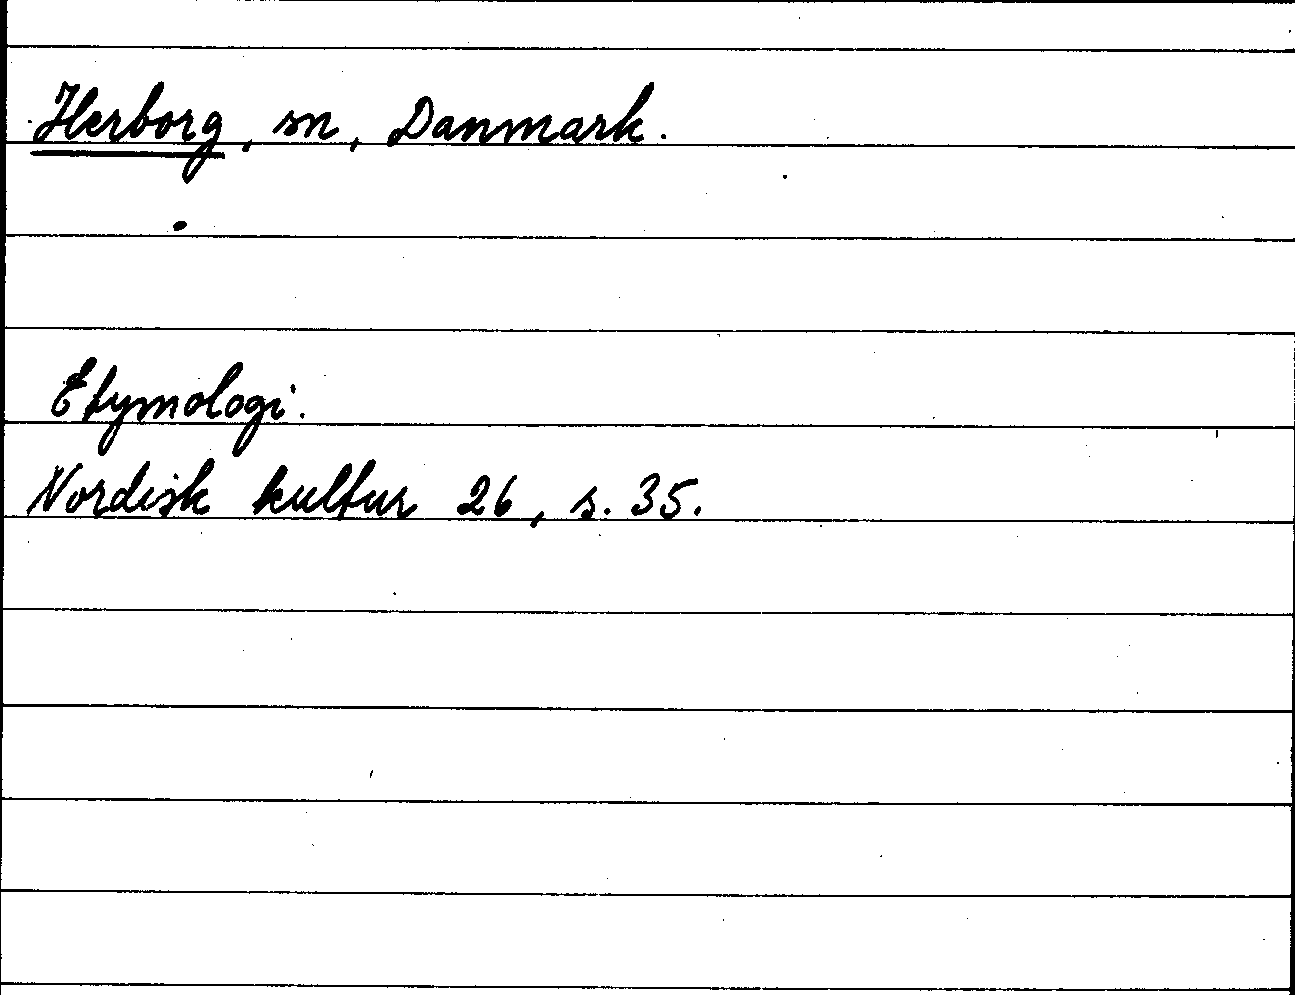 Herborg, sn, Danmark.
Etymologi.
Nordisk kultur 26, s. 35.